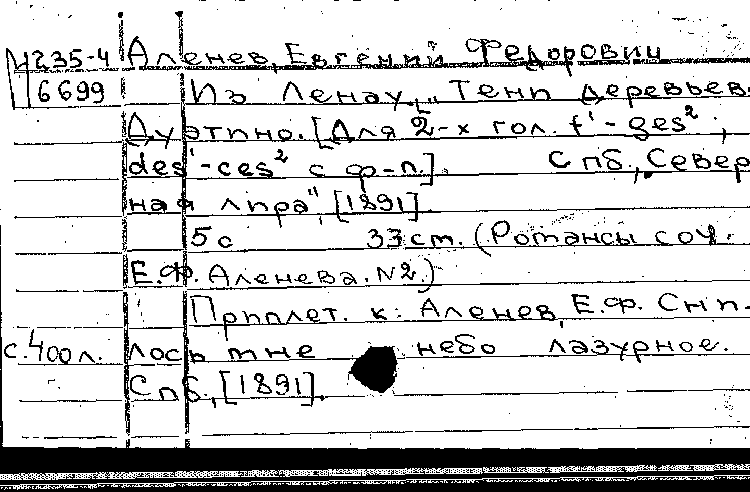 М235-4 Аленев, Евгений Федорович
6699 Из Ленау. "Тени деревьев.
Дуэтино. [Для 2-х гол. f'-ges²;
des'-ces² с ф-п.]. Спб., Север
ная лира", [1891].
5 с 33 см. (Романсы соч.
Е.Ф. Аленева. №2.)
Приплет. к: Аленев, Е.Ф. Сни-
с. 400 л. лось мне небо лазурное.
Спб., [1891].